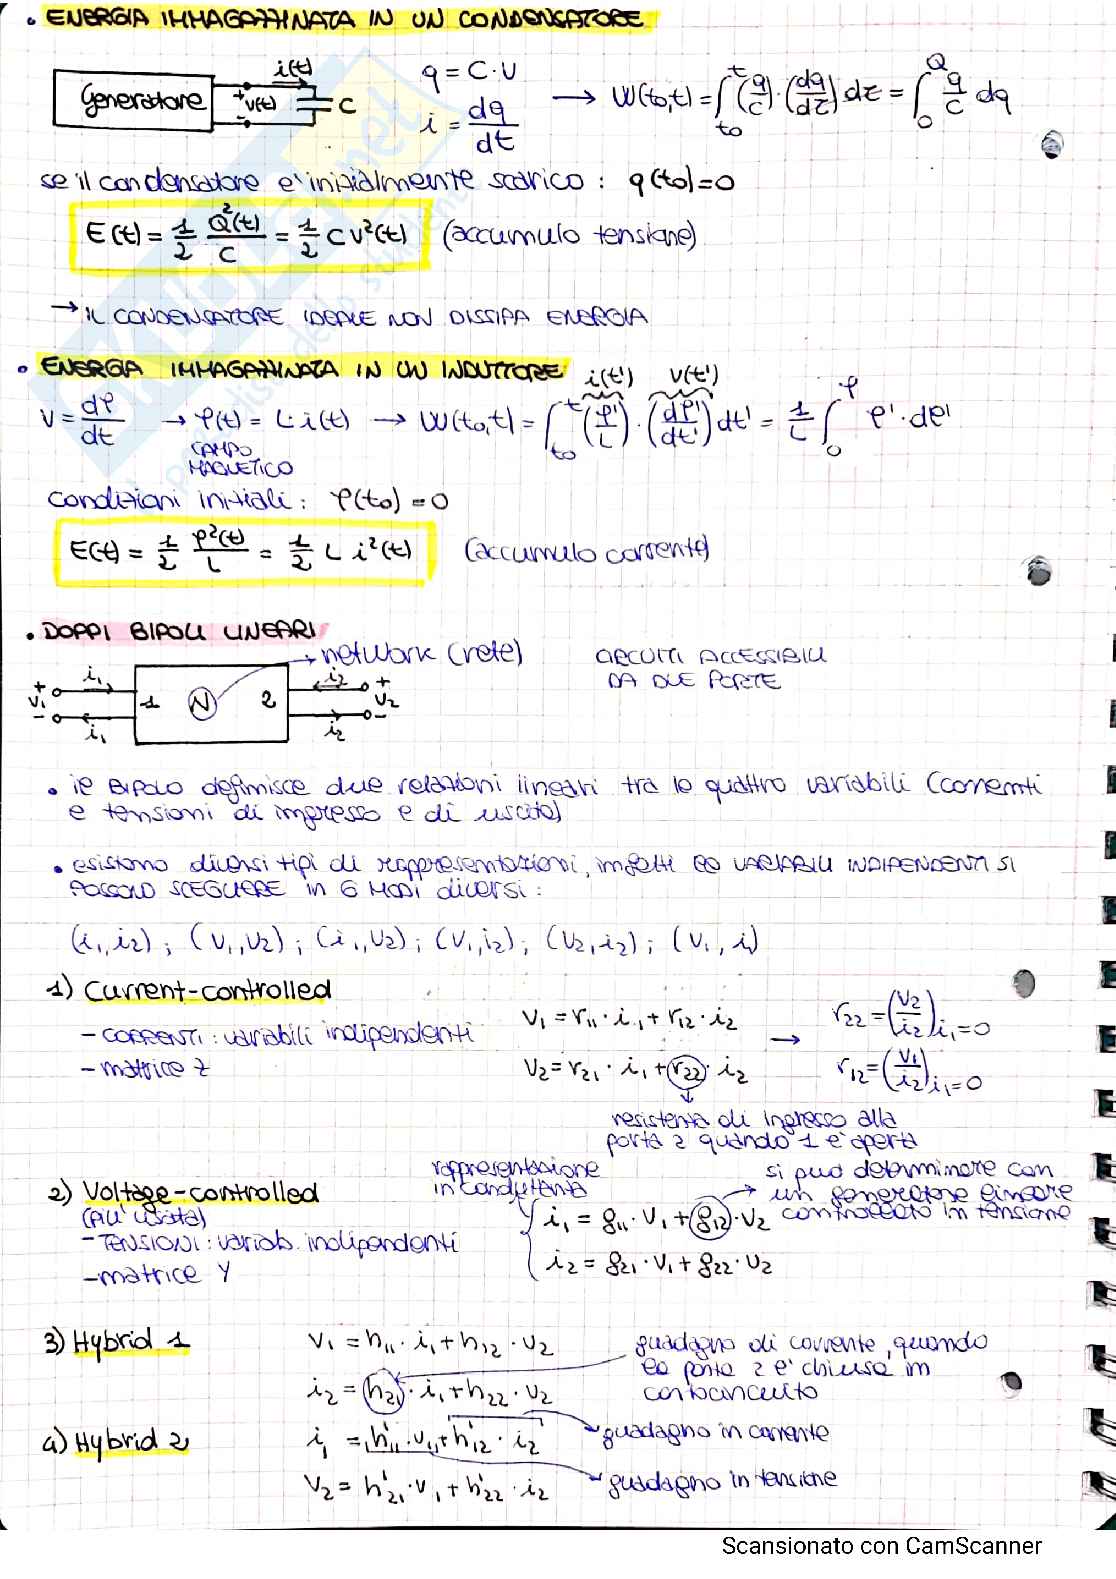 • ENERGIA IMMAGAZZINATA IN UN CONDENSATORE
Generatore i(t) + v(t) - C
q = C·V
i = dq/dt
→ W(t₀,t) = ∫_{t₀}^{t} (q/C)·(dq/dτ) dτ = ∫_0^Q q/C dq
se il condensatore e' inizialmente scarico : q(t₀)=0
E(t) = 1/2 Q²(t)/C = 1/2 C V²(t) (accumulo tensione)
→ IL CONDENSATORE IDEALE NON DISSIPA ENERGIA
• ENERGIA IMMAGAZZINATA IN UN INDUTTORE
i(t') v(t')
V = dφ/dt → φ(t) = L·i(t) → W(t₀,t) = ∫_{t₀}^{t} (φ'/L)·(dφ'/dt') dt' = 1/L ∫_0^φ φ'·dφ'
CAMPO
MAGNETICO
condizioni iniziali : φ(t₀) = 0
E(t) = 1/2 φ²(t)/L = 1/2 L i²(t) (accumulo corrente)
• DOPPI BIPOLI LINEARI
network (rete)
CIRCUITI ACCESSIBILI
DA DUE PORTE
+ V₁ - i₁ i₁ 1 N 2 i₂ i₂ + V₂ -
• il BIPOLO definisce due relazioni lineari tra le quattro variabili (correnti
e tensioni di ingresso e di uscita)
• esistono diversi tipi di rappresentazioni, infatti le VARIABILI INDIPENDENTI SI
POSSONO SCEGLIERE in 6 MODI diversi :
(i₁,i₂) ; (V₁,V₂) ; (i₁,V₂) ; (V₁,i₂) ; (V₂,i₂) ; (V₁,i)
1) Current-controlled
- CORRENTI : variabili indipendenti
- matrice Z
V₁ = r₁₁·i₁ + r₁₂·i₂
V₂ = r₂₁·i₁ + r₂₂·i₂
→
r₂₂ = (V₂/i₂) i₁=0
r₁₂ = (V₁/i₂) i₁=0
resistenza di ingresso alla
porta 2 quando 1 e' aperta
2) Voltage-controlled
(all' uscita)
- TENSIONI : variab. indipendenti
- matrice Y
rappresentazione
in conduttanza
i₁ = g₁₁·V₁ + g₁₂·V₂
i₂ = g₂₁·V₁ + g₂₂·V₂
si può determinare con
un generatore lineare
controllato in tensione
3) Hybrid 1
V₁ = h₁₁·i₁ + h₁₂·V₂
i₂ = h₂₁·i₁ + h₂₂·V₂
guadagno di corrente, quando
la porta 2 e' chiusa in
cortocircuito
4) Hybrid 2
i₁ = h'₁₁·V₁ + h'₁₂·i₂
V₂ = h'₂₁·V₁ + h'₂₂·i₂
guadagno in corrente
guadagno in tensione
Scansionato con CamScanner